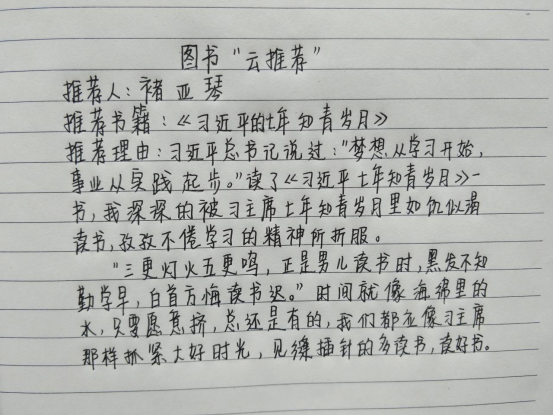 图书“云推荐”
推荐人：褚亚琴
推荐书籍：《习近平的七年知青岁月》
推荐理由：习近平总书记说过：“梦想从学习开始，
事业从实践起步。”读了《习近平七年知青岁月》一
书，我深深的被习主席七年知青岁月里如饥似渴
读书，孜孜不倦学习的精神所折服。
“三更灯火五更鸣，正是男儿读书时，黑发不知
勤学早，白首方悔读书迟。”时间就像海绵里的
水，只要愿意挤，总还是有的，我们都应像习主席
那样抓紧大好时光，见缝插针的多读书，读好书。